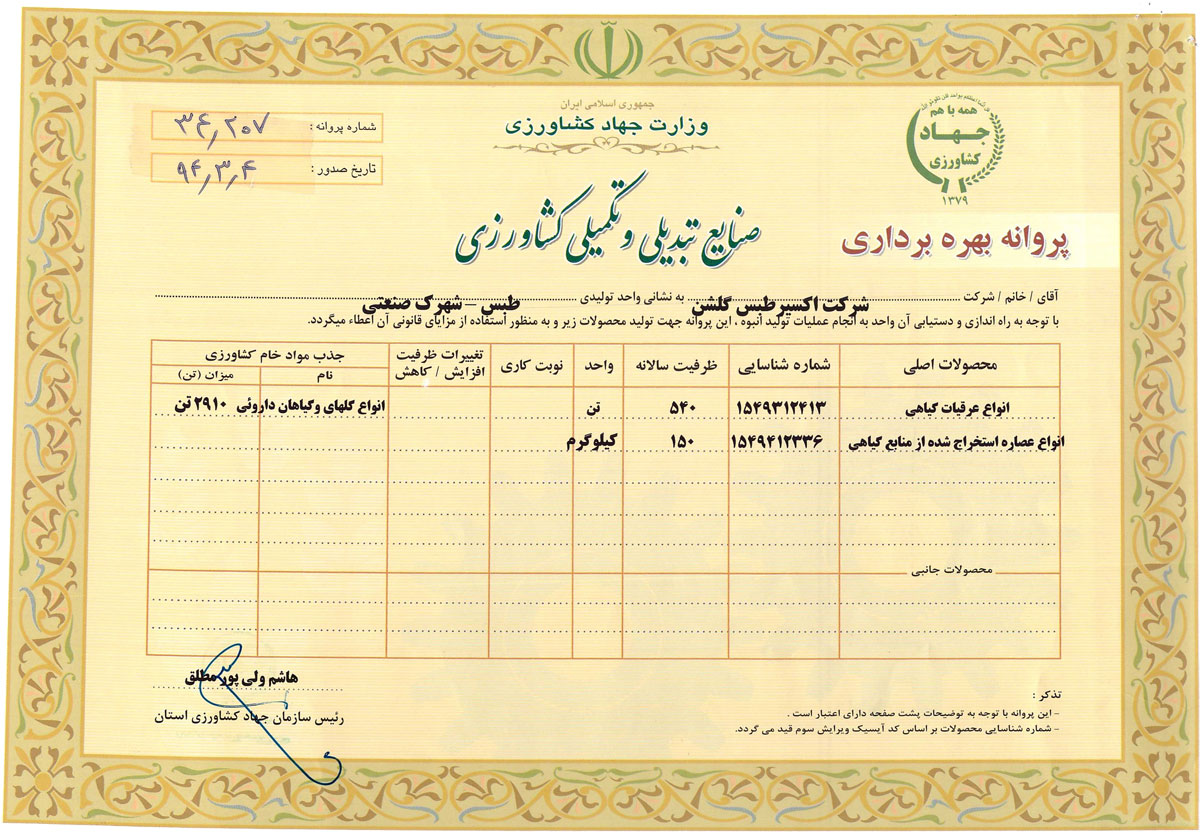 جمهوری اسلامی ایران
وزارت جهاد کشاورزی
همه با هم
جهاد
کشاورزی
۱۳۷۹
شماره پروانه : ۳۴٫۲۰۷
تاریخ صدور : ۹۴٫۳٫۴
صنایع تبدیلی و تکمیلی کشاورزی
پروانه بهره برداری
آقای / خانم / شرکت شرکت اکسیرطبس گلشن به نشانی واحد تولیدی طبس – شهرک صنعتی
با توجه به راه اندازی و دستیابی آن واحد به انجام عملیات تولید انبوه ، این پروانه جهت تولید محصولات زیر و به منظور استفاده از مزایای قانونی آن اعطاء میگردد.
محصولات اصلی شماره شناسایی ظرفیت سالانه واحد نوبت کاری تغییرات ظرفیت افزایش / کاهش جذب مواد خام کشاورزی
نام میزان (تن)
انواع عرقیات کیاهی ۱۵۴۹۳۱۲۴۱۳ ۵۴۰ تن انواع کلهای وکیاهان داروئی ۲۹۱۰ تن
انواع عصاره استخراج شده از منابع کیاهی ۱۵۴۹۴۱۲۳۳۶ ۱۵۰ کیلوگرم
محصولات جانبی
هاشم ولی پور مطلق
رئیس سازمان جهاد کشاورزی استان
تذکر :
– این پروانه با توجه به توضیحات پشت صفحه دارای اعتبار است .
– شماره شناسایی محصولات بر اساس کد آیسیک ویرایش سوم قید می گردد.